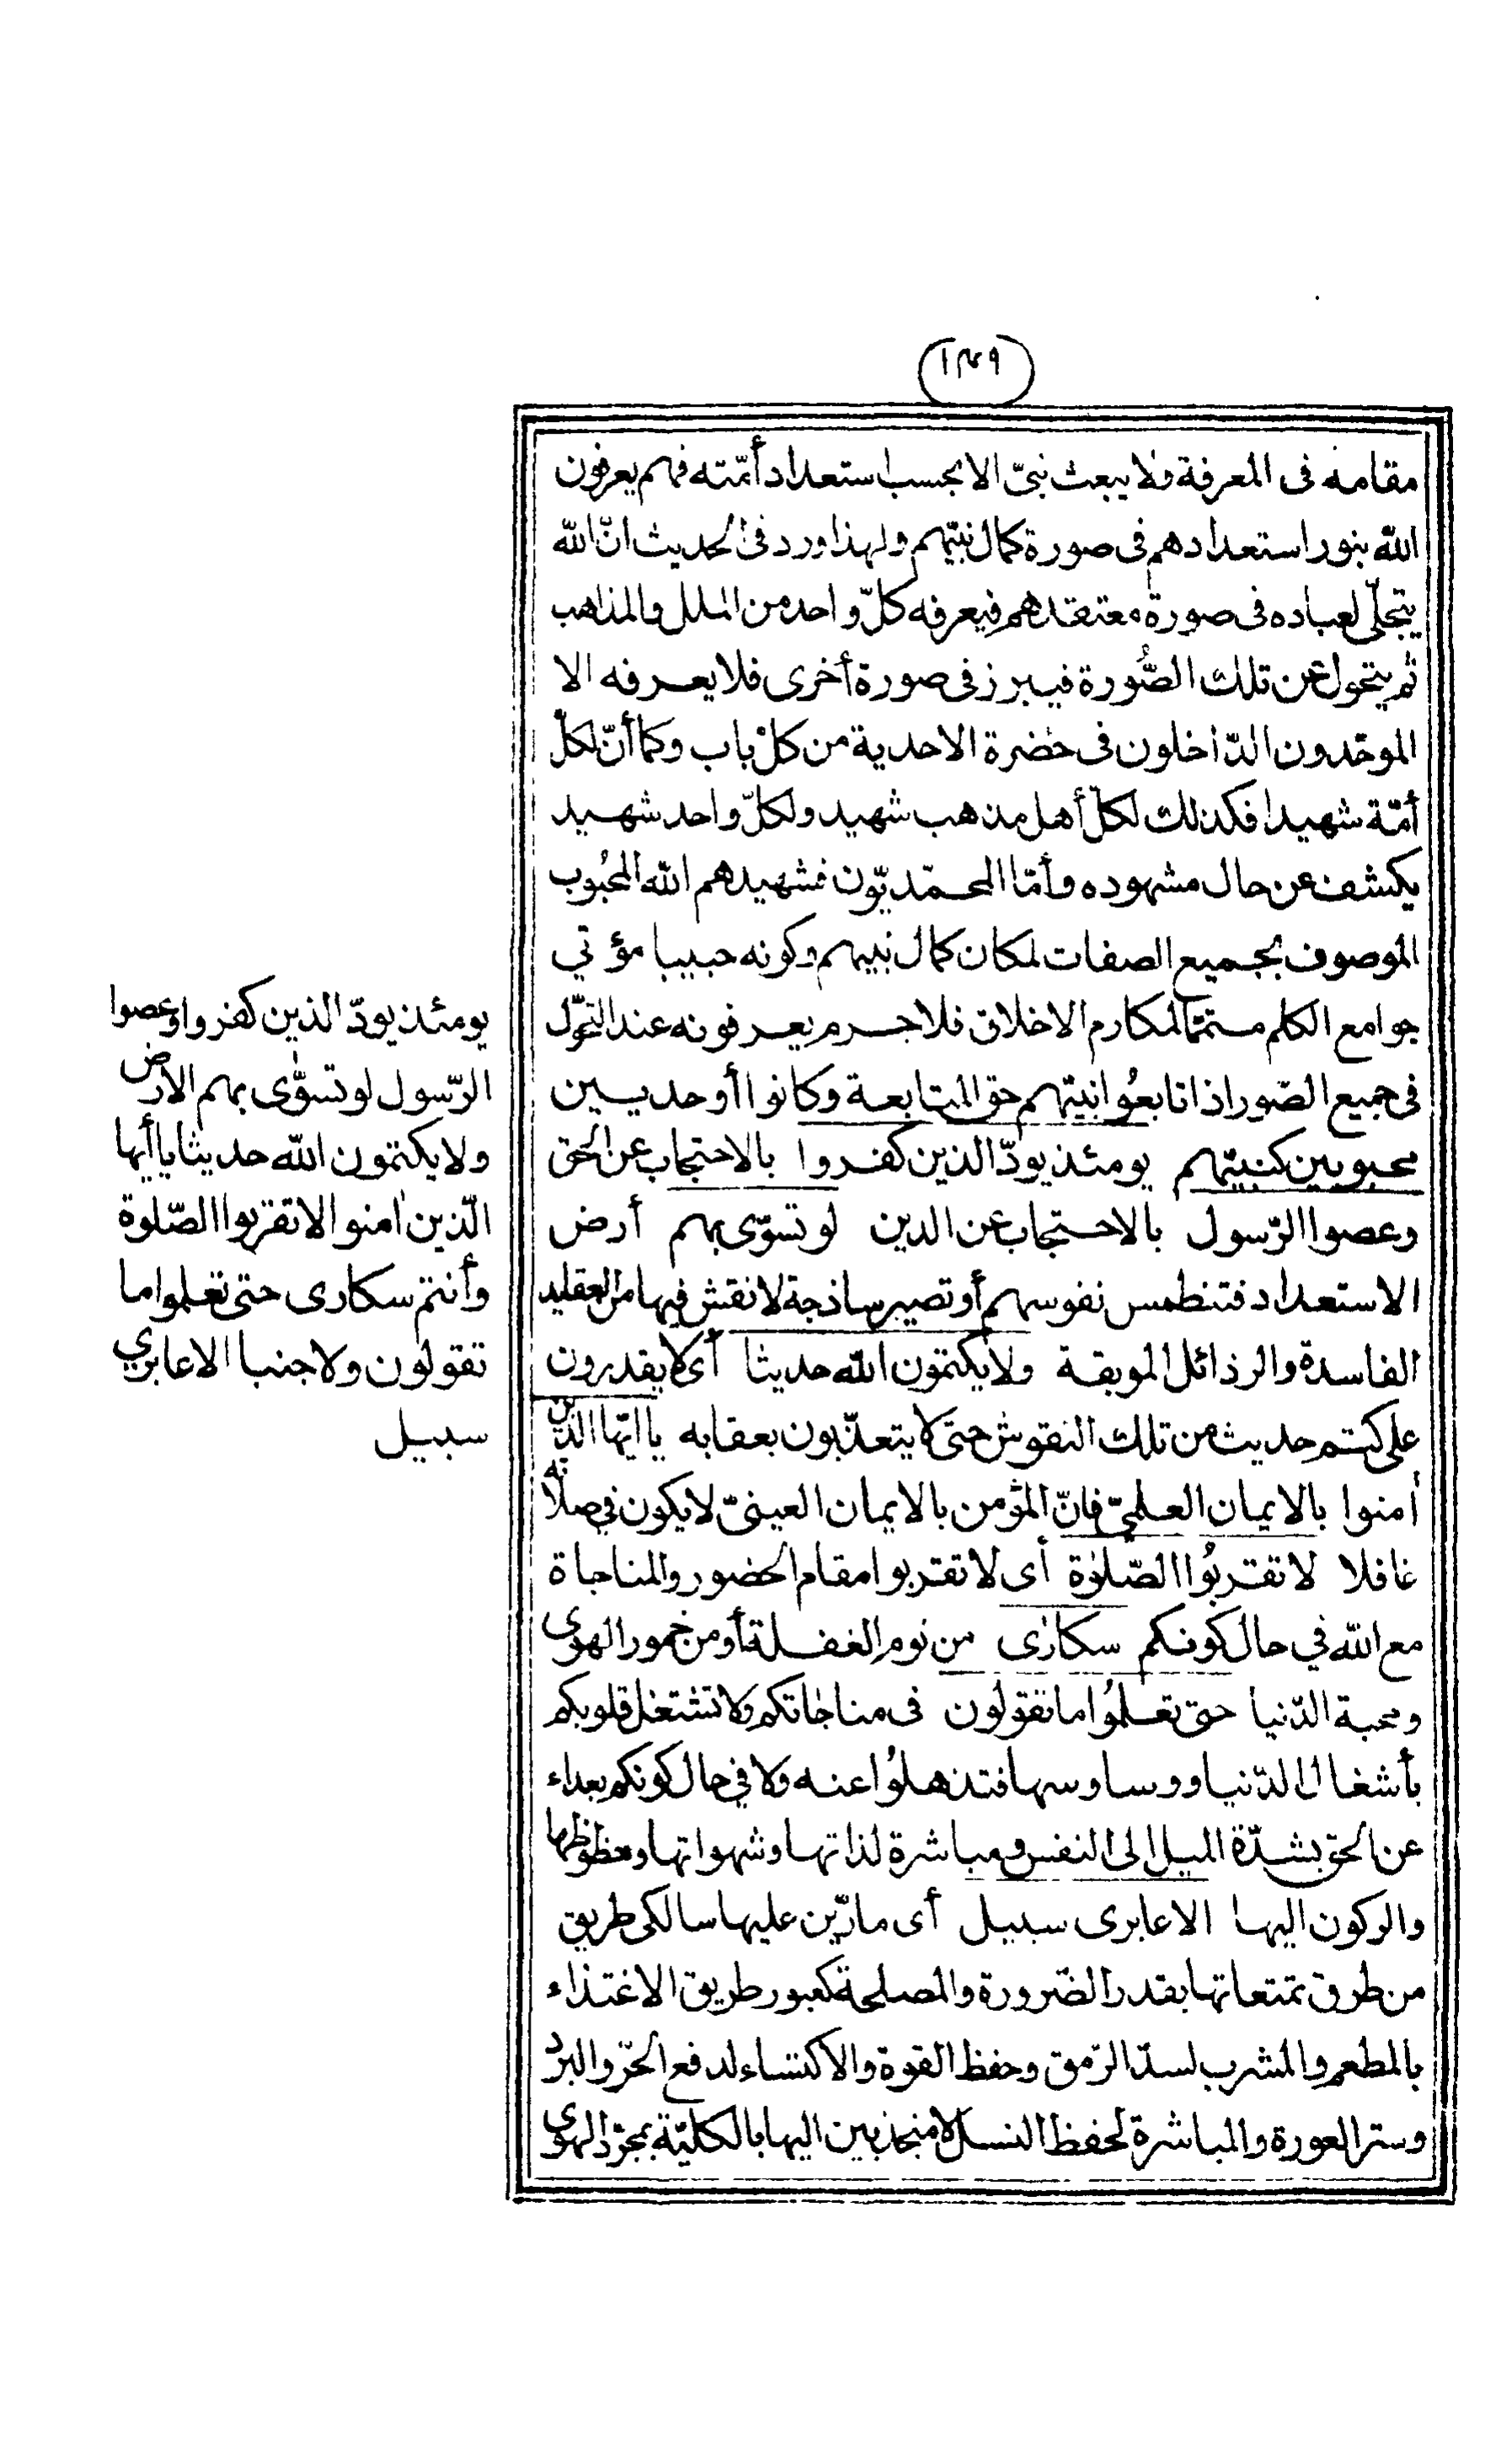 ١٤٩
مقامه فى المعرفة ولا يبعث نبىّ الا بحسب استعداد أمّته فهم يعرفون
الله بنور استعدادهم فى صورة كمال نبيّهم ولهذا ورد فى الحديث انّ الله
يتجلّى لعباده فى صورة معتقدهم فيعرفه كلّ واحد من الملل والمذاهب
ثم يتحول عن تلك الصُّورة فيبرز فى صورة أخرى فلا يعرفه الا
الموحّدون الدّاخلون فى حضرة الاحدية من كلّ باب وكما أنّ لكلّ
أمّة شهيدا فكذلك لكلّ أهل مذهب شهيد ولكلّ واحد شهيد
يكشف عن حال مشهوده وأمّا المحمّديّون فشهيدهم الله المحبُوب
الموصوف بجميع الصفات لمكان كمال نبيهم وكونه حبيبا مؤتي
جوامع الكلم متمّما لمكارم الاخلاق فلا جرم يعرفونه عند التحوّل
فى جميع الصّور اذا تابعُوا نبيّهم حق المتابعة وكانوا أوحديين
محبوبين كنبيّهم يومئذ يودّ الذين كفروا بالاحتجاب عن الحق
وعصوا الرّسول بالاحتجاب عن الدين لو تسوّى بهم أرض
الاستعداد فتنطمس نفوسهم أو تصير ساذجة لا نقش فيها من العقايد
الفاسدة والرذائل الموبقة ولا يكتمون الله حديثا أى لا يقدرون
على كتم حديث من تلك النقوش حتى لا يتعذّبون بعقابه يا ايّها الذين
اٰمنوا بالايمان العلمىّ فانّ المؤمن بالايمان العينىّ لا يكون في صلاته
غافلا لا تقربُوا الصّلوٰة أى لا تقربوا مقام الحضور والمناجاة
مع الله في حال كونكم سكارٰى من نوم الغفلة أو من خمور الهوى
ومحبة الدّنيا حتى تعلمُوا ما تقولون فى مناجاتكم ولا تشتغل قلوبكم
بأشغال الدّنيا ووساوسها فتذهلُوا عنه ولا في حال كونكم بعداء
عن الحق بشدّة الميل الى النفس ومباشرة لذاتها وشهواتها وحظوظها
والركون اليها الا عابرى سبيل أى مارّين عليها سالكى طريق
من طرق تمتعاتها بقدر الضّرورة والمصلحة كعبور طريق الاغتذاء
بالمطعم والمشرب لسدّ الرّمق وحفظ القوة والاكتساء لدفع الحرّ والبرد
وستر العورة والمباشرة لحفظ النسل لا منجذبين اليها بالكليّة بمجرّد الهوى
يومئذ يودّ الذين كفروا وعصوا
الرّسول لو تسوّٰى بهم الارض
ولا يكتمون الله حديثا يا أيها
الّذين اٰمنوا لا تقربوا الصّلوة
وأنتم سكارى حتى تعلموا ما
تقولون ولا جنبا الا عابري
سبيل